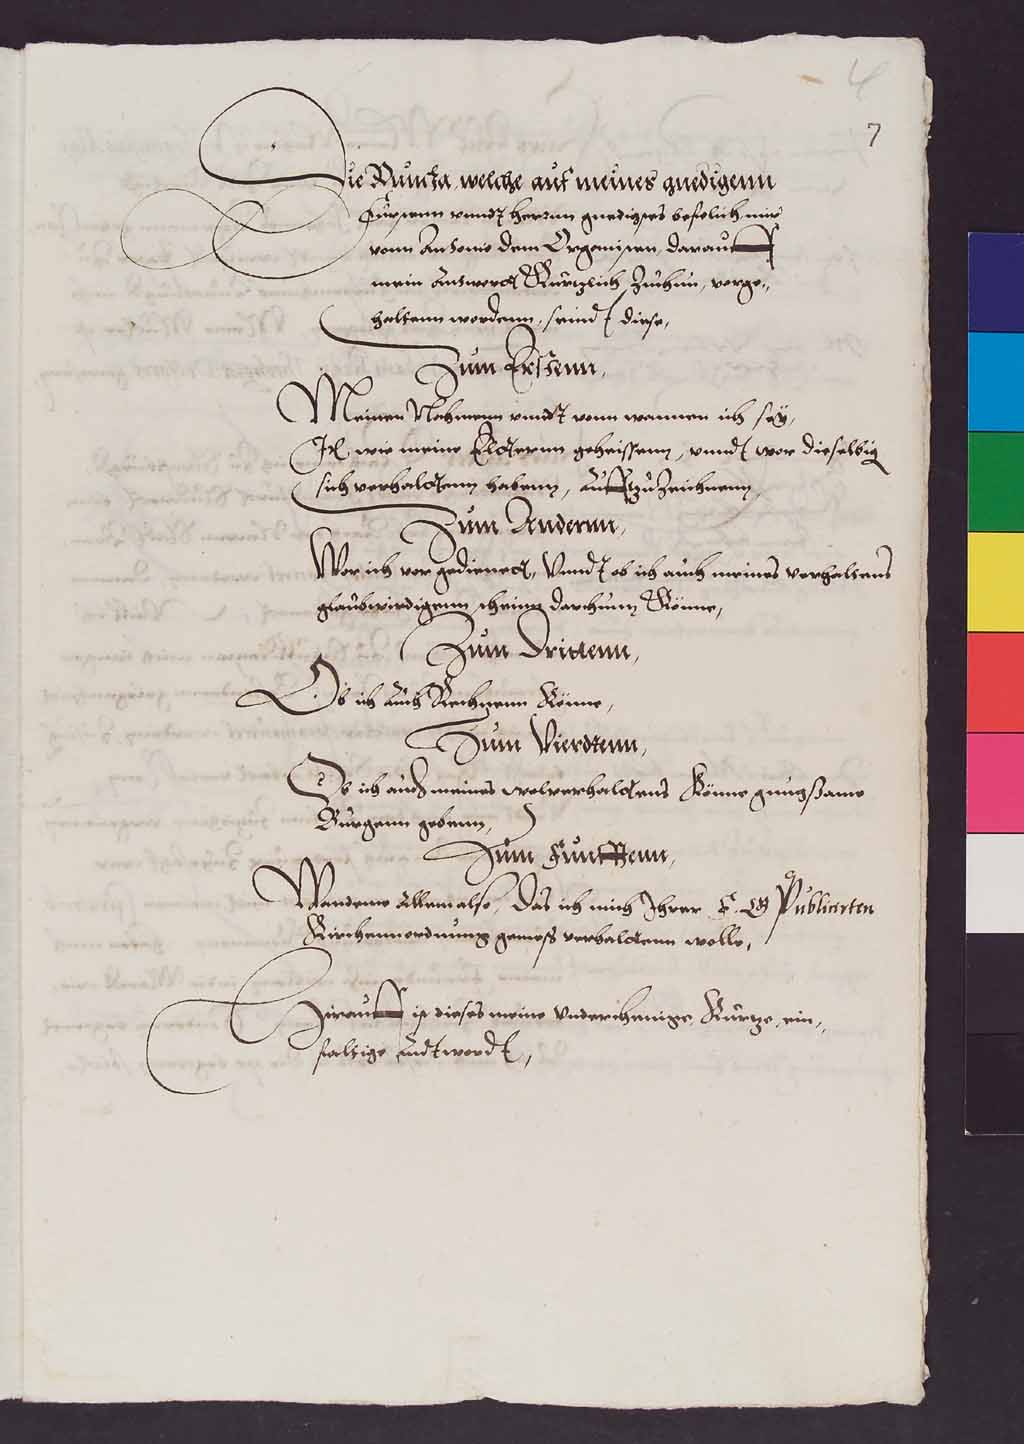 4
7
Die Puncta welche auf meines gnedigenn
Fursten vnndt Herrnn gnediges befelich mir
vonn Antonio dem Organisten, darauff
mein Antwordt Kürtzlich zuthun, vorge„
haltenn wordenn, seindt diese,
Zum Erstenn,
Meinen Nahmenn vnndt vonn wannen ich sey,
It. wie meine Eldternn geheissenn, vnndt wor dieselbig
sich verhaldtenn habenn, auffzuzeichnenn,
Zum Andernn,
Wor ich vor gedienedt, Vnndt ob ich auch meines verhaltens
glaubwirdigenn scheinn darthunn Könne,
Zum Drittenn,
Ob ich auch Rechnenn Könne,
Zum Vierdtenn,
Ob ich auch meines wolverhaldtens Könne gnugsame
Burgenn gebenn,
Zum Funfftenn,
Wandeme allem also, Das ich mich Ihrer F. G. Publicirten
Kirchennordnung gemess verhaldtenn wolle,
Hirauff ist dieses meine Vnderthenige Kurtze ein„
faltige Andtwordt,